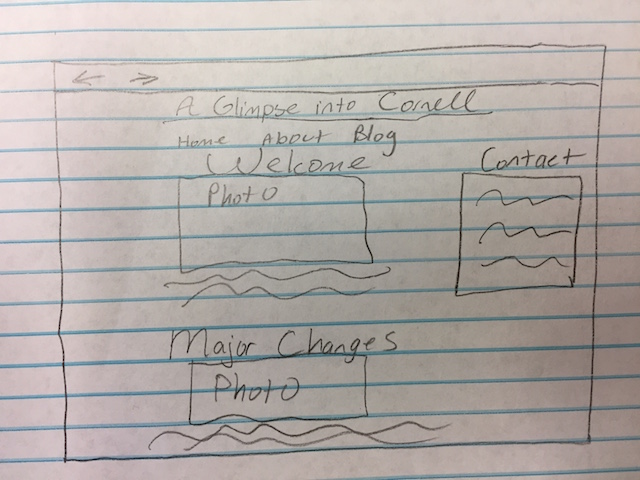 A Glimpse into Cornell
Home About Blog
Welcome
Photo
Contact
Major Changes
Photo